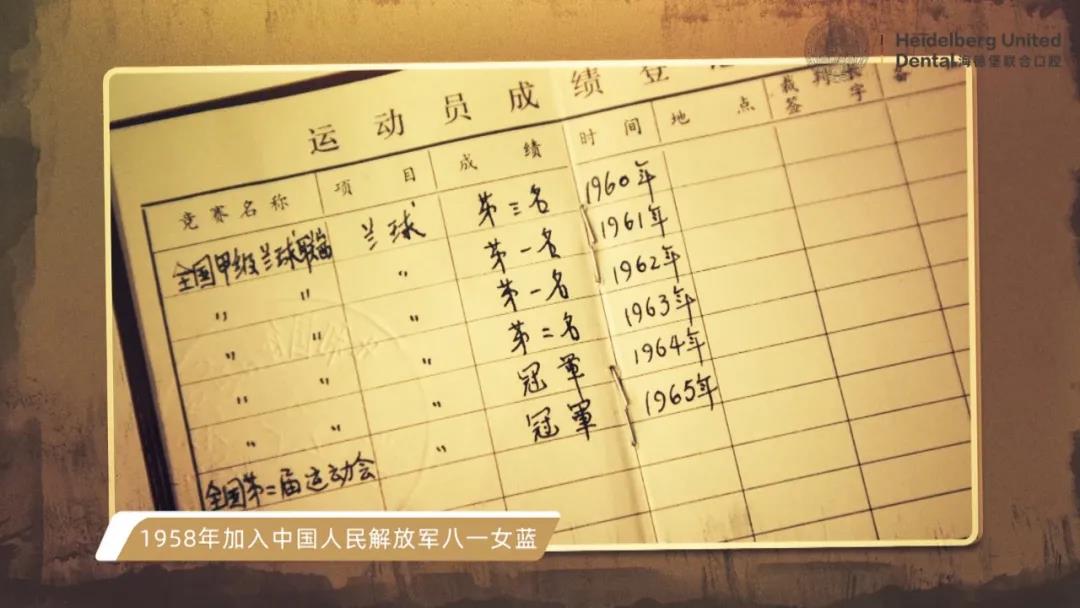 Heidelberg United
Dental 海德堡联合口腔
运动员成绩登
竞赛名称 项目 成绩 时间 地点 裁判长签字 备
全国甲级兰球联赛 兰球 第三名 1960年
〃 〃 第一名 1961年
〃 〃 第一名 1962年
〃 〃 第二名 1963年
〃 〃 冠军 1964年
全国第二届运动会 〃 冠軍 1965年
1958年加入中国人民解放军八一女蓝